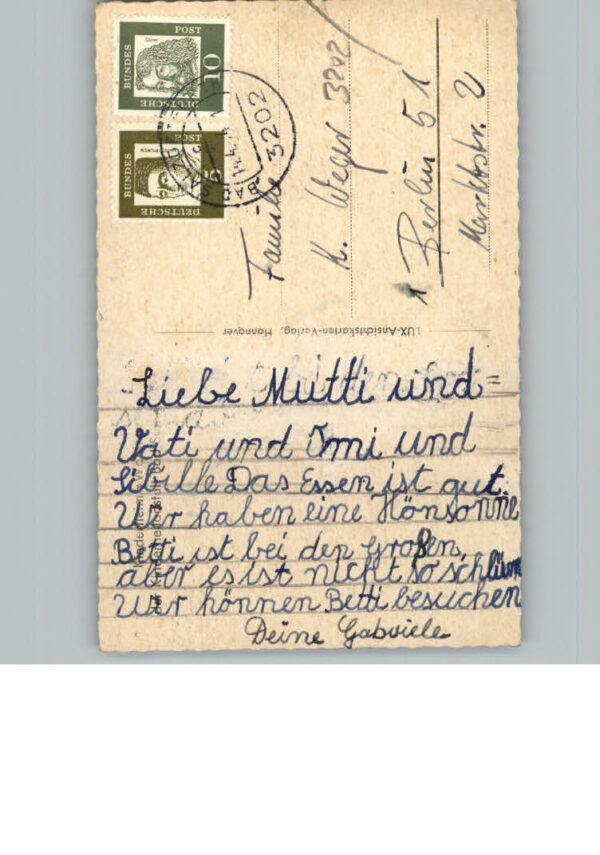 Dürer
DEUTSCHE
BUNDES
POST
10
DEUTSCHE
BUNDES
POST
5
3202
Familie
K. Weger 3202
1 Berlin 51
Marktstr. 2
LUX-Ansichtskarten-Verlag, Hannover
Liebe Mutti und
Vati und Omi und
Sibille Das Essen ist gut.
Wir haben eine Hönsonne
Betti ist bei den Großen,
aber es ist nicht so schlimm
Wir hönnen Betti besuchen
Deine Gabriele